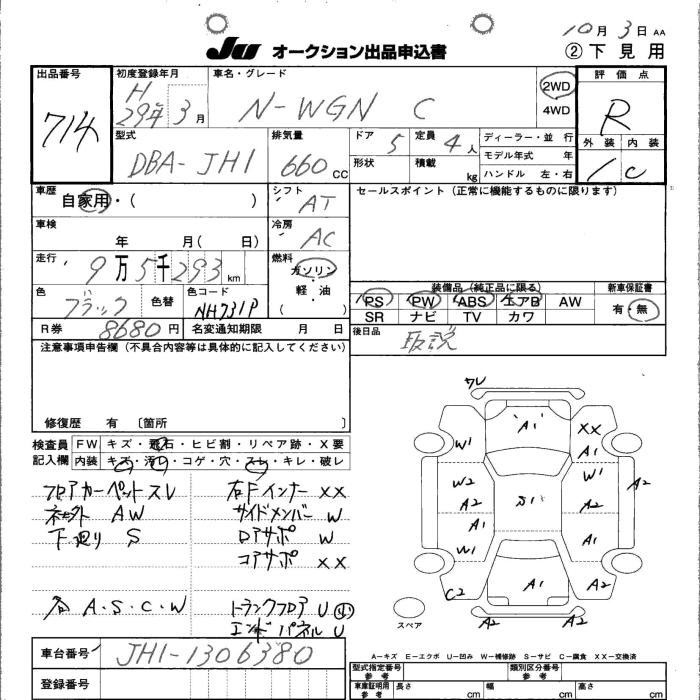 10月 3日 AA
JU オークション出品申込書 ②下見用
出品番号 714
初度登録年月 H 29年 3月
車名・グレード N-WGN C
2WD
4WD
評価点 R
外装 内装
1 C
型式 DBA-JH1
排気量 660 CC
ドア 5 定員 4人
形状 積載 kg
ディーラー・並行
モデル年式 年
ハンドル 左・右
車歴 自家用・( )
シフト AT
セールスポイント (正常に機能するものに限ります)
車検 年 月( 日)
冷房 AC
走行 9万5千293 km
燃料 ガソリン
軽・油
( )
色 ブラック 色替 色コード NH731P
装備品 (純正品に限る) 新車保証書
PS PW ABS エアB AW 有・無
SR ナビ TV カワ
R券 8680円 名変通知期限 月 日
後日品 取説
注意事項申告欄 (不具合内容等は具体的に記入してください)
修復歴 有 〔箇所 〕
検査員 FW キズ・飛石・ヒビ割・リペア跡・X要
記入欄 内装 キズ・汚れ・コゲ・穴・スレ・キレ・破レ
フロアカーペットスレ 右Fインナー XX
AW サイドメンバー W
下廻り S ロアサポ W
コアサポ XX
各 A・S・C・W トランクフロア U W
エンドパネル U
ワレ
A1 XX
W1 A1
W2 A2 S1 W1 A2 A2
A1 W1 A1
C2 A1 A2
スペア A2 A2
A-キズ E-エクボ U-凹み W-補修跡 S-サビ C-腐食 XX-交換済
車台番号 JH1-1306380
登録番号
型式指定番号 参考 類別区分番号 参考
車庫証明用 参考 長さ cm 幅 cm 高さ cm